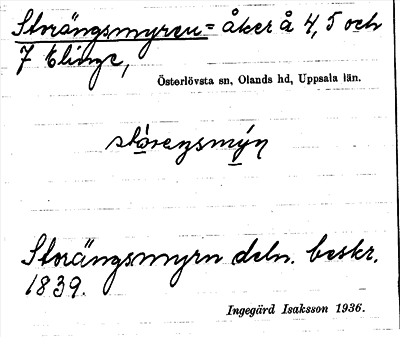 Storängsmyren = åker å 4, 5 och
7 Elinge,
Österlövsta sn, Olands hd, Uppsala län.
stóræŋsmýṇ
Storängsmyrn deln. beskr.
1839.
Ingegärd Isaksson 1936.